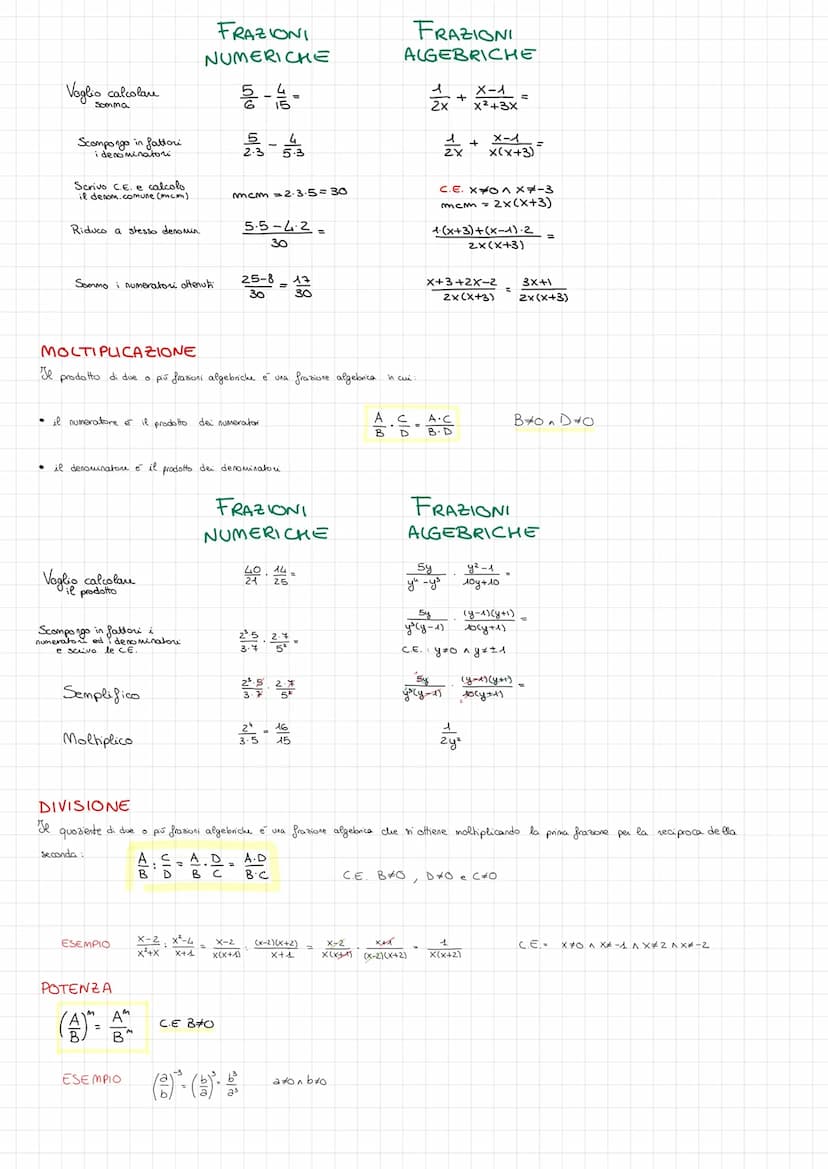 FRAZIONI NUMERICHE
FRAZIONI ALGEBRICHE
Voglio calcolare somma
5/6 - 4/15 =
1/2x + x-1/x²+3x =
Scompongo in fattori i denominatori
5/2·3 - 4/5·3
1/2x + x-1/x(x+3) =
Scrivo C.E. e calcolo il denom. comune (mcm)
mcm = 2·3·5 = 30
C.E. x≠0 ∧ x≠-3
mcm = 2x(x+3)
Riduco a stesso denomin.
5·5-4·2/30 =
1·(x+3)+(x-1)·2/2x(x+3) =
Sommo i numeratori ottenuti
25-8/30 = 17/30
x+3+2x-2/2x(x+3) = 3x+1/2x(x+3)
MOLTIPLICAZIONE
Il prodotto di due o più frazioni algebriche é una frazione algebrica in cui:
• il numeratore é il prodotto dei numerator
A/B · C/D = A·C/B·D
B≠0 ∧ D≠0
• il denominatore é il prodotto dei denominatori
FRAZIONI NUMERICHE
FRAZIONI ALGEBRICHE
Voglio calcolare il prodotto
40/21 · 14/25 =
5y/y⁴-y³ · y²-1/10y+10 =
Scompongo in fattori i numeratori ed i denominatori e scrivo le C.E.
2³·5/3·7 · 2·7/5² =
5y/y³(y-1) · (y-1)(y+1)/10(y+1) =
C.E.: y≠0 ∧ y≠±1
Semplifico
2³·5/3·7 · 2·7/5²
5y/y³(y-1) · (y-1)(y+1)/10(y+1) =
Moltiplico
2⁴/3·5 = 16/15
1/2y²
DIVISIONE
Il quoziente di due o più frazioni algebriche é una frazione algebrica che si ottiene moltiplicando la prima frazione per la reciproca della
seconda:
A/B : C/D = A/B · D/C = A·D/B·C
C.E. B≠0, D≠0 e C≠0
ESEMPIO
x-2/x²+x : x²-4/x+1 = x-2/x(x+1) : (x-2)(x+2)/x+1 = x-2/x(x+1) · x+1/(x-2)(x+2) = 1/x(x+2)
C.E. = x≠0 ∧ x≠-1 ∧ x≠2 ∧ x≠-2
POTENZA
(A/B)ᵐ = Aᵐ/Bᵐ
C.E B≠0
ESEMPIO
(a/b)⁻³ = (b/a)³ = b³/a³
a≠0 ∧ b≠0